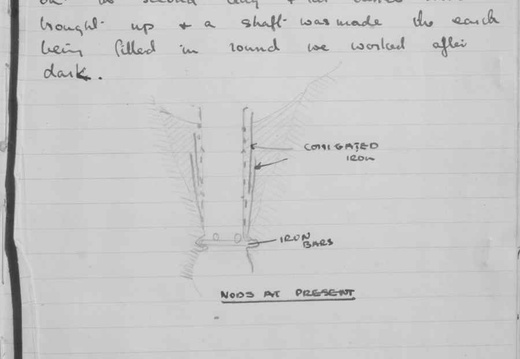 brought up & a shaft was made the earth
being filled in round we worked after
dark.
CORRIGATED
IRON
IRON
BARS
NODS AT PRESENT